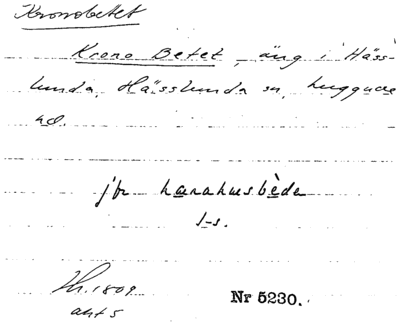 Kronobetet
Krono Betet, äng i Häss-
lunda, Hässlunda sn, Luggude
hd.
jfr
l-s.
1809
akt 5
Nr 5230.